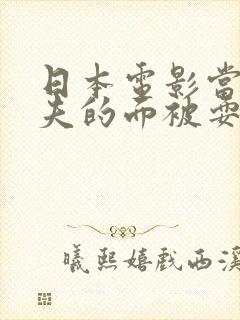 日本電影當
夫的面被要
曦熙嬉戲西溪